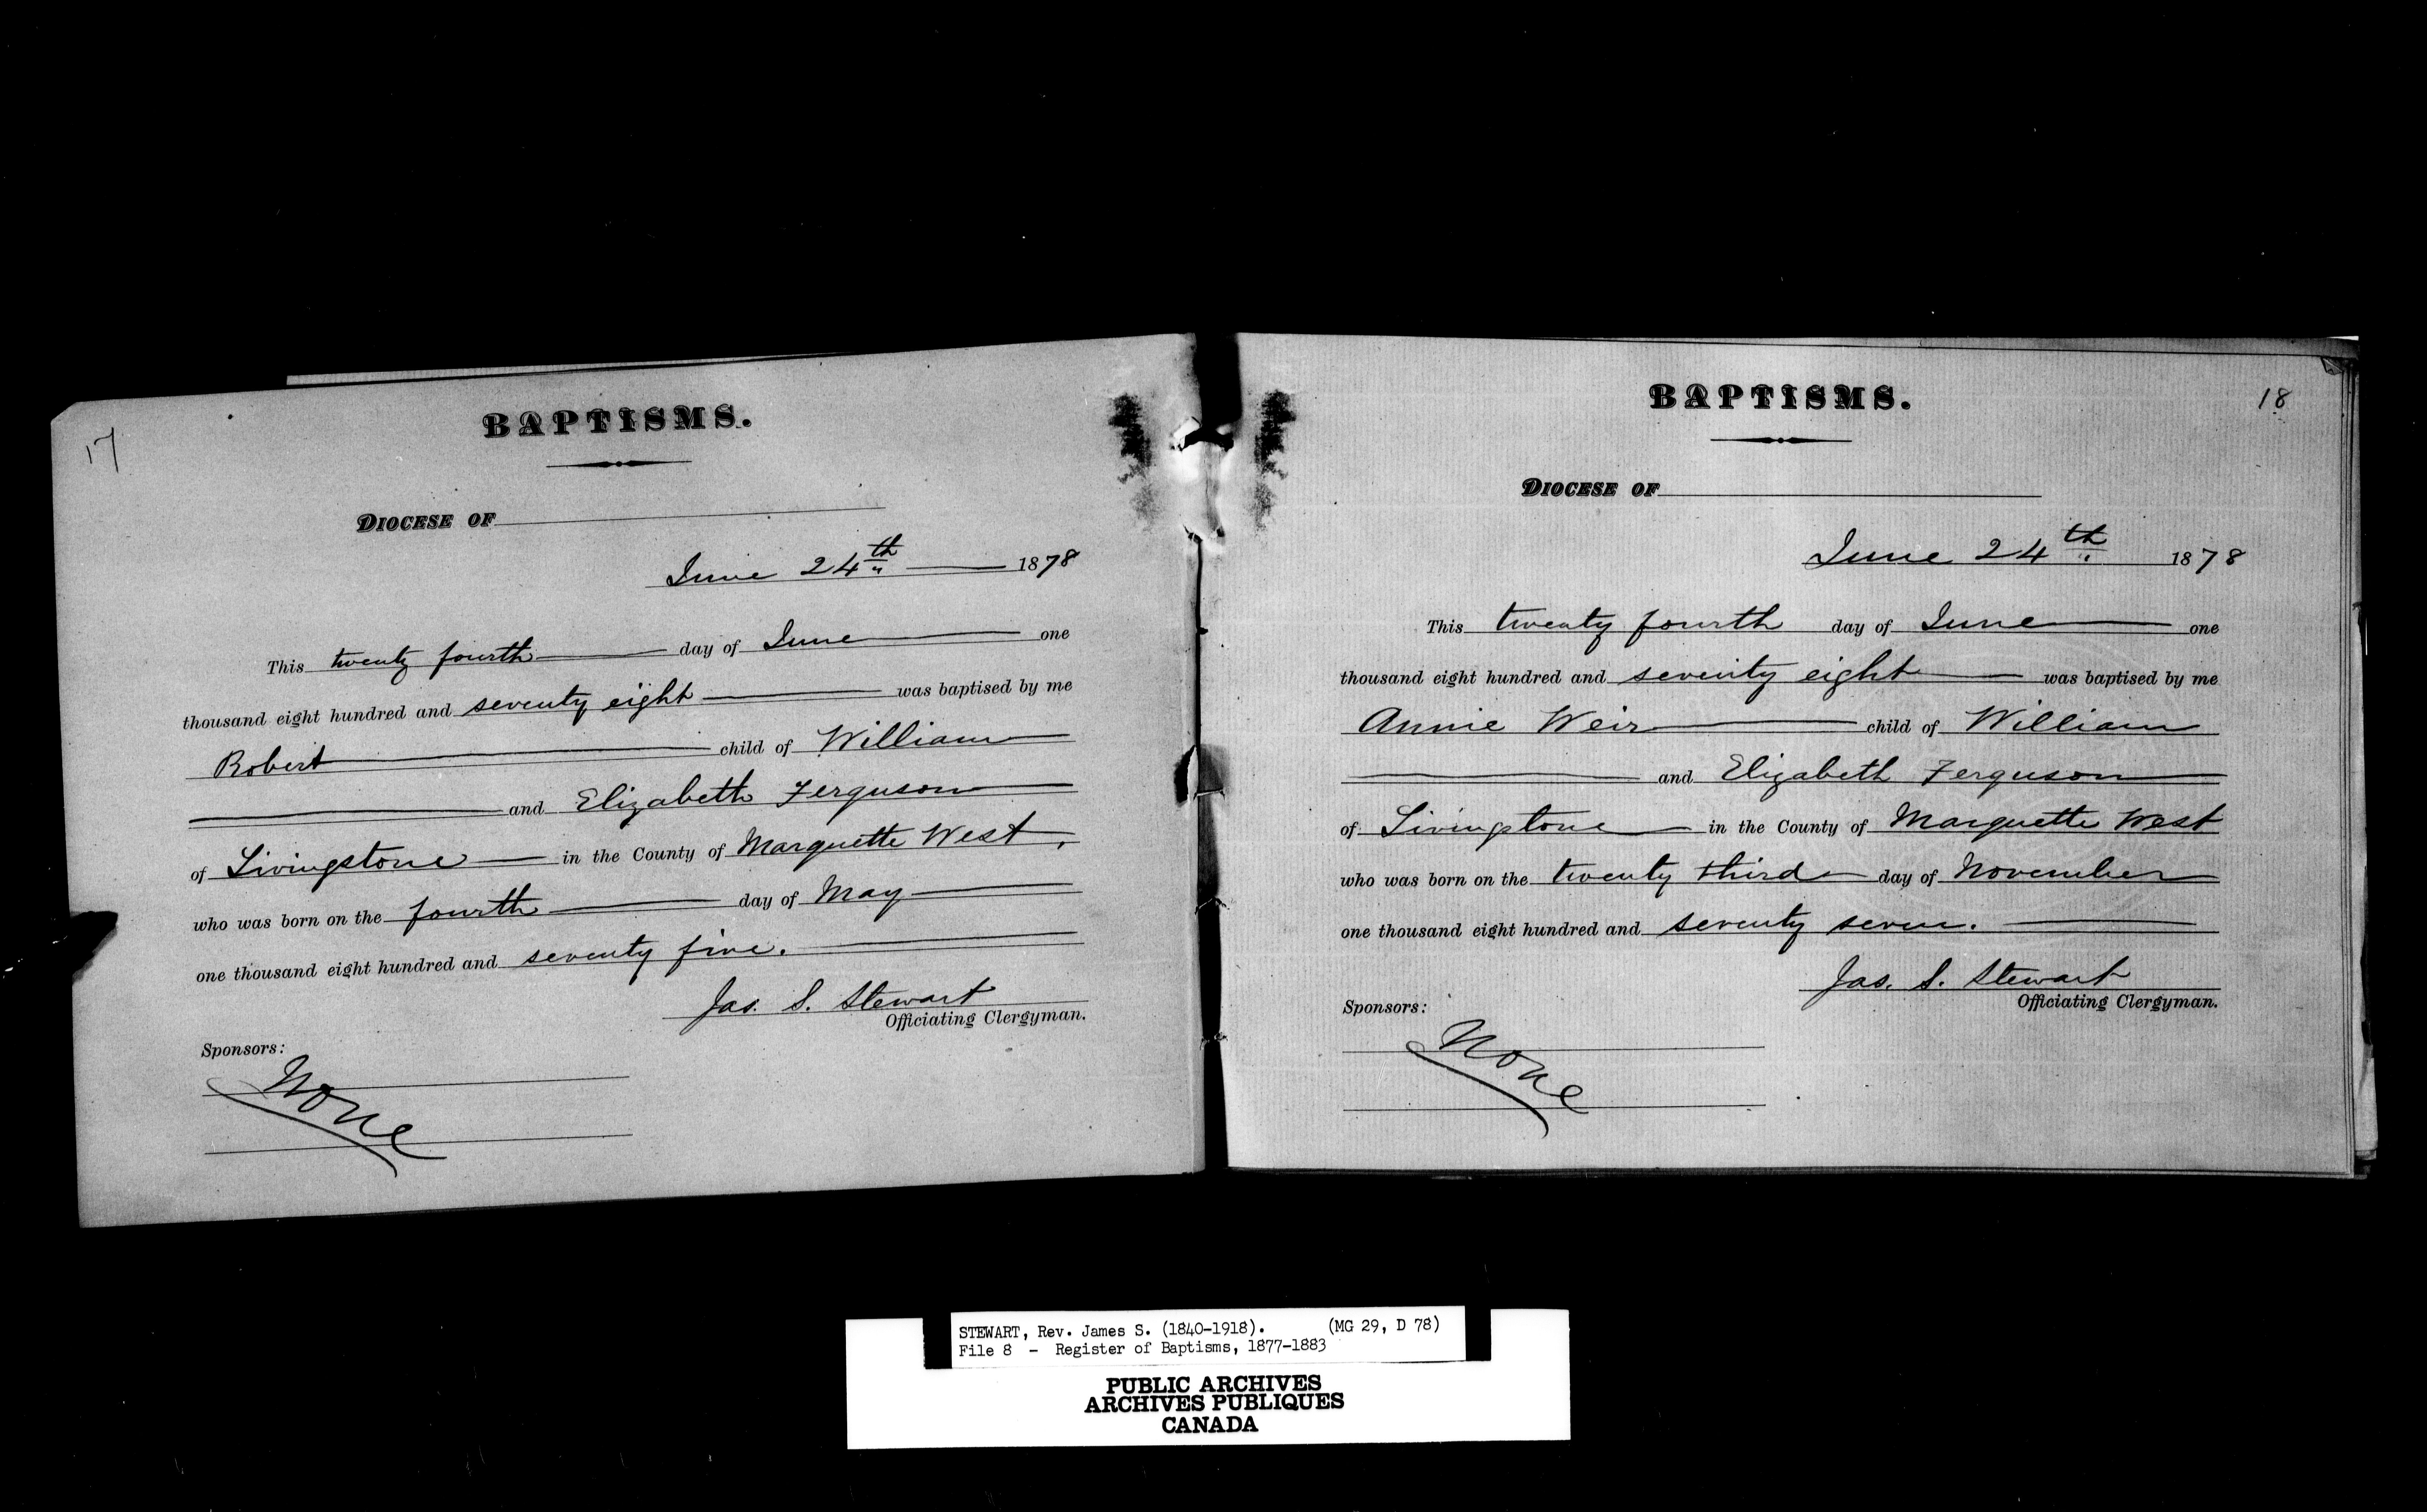 17
BAPTISMS.
DIOCESE OF
June 24th 1878
This twenty fourth day of June one
thousand eight hundred and seventy eight was baptised by me
Robert child of William
and Elizabeth Ferguson
of Livingstone in the County of Marquette West,
who was born on the fourth day of May
one thousand eight hundred and seventy five.
Jas. S. Stewart
Officiating Clergyman.
Sponsors:
None
18
BAPTISMS.
DIOCESE OF
June 24th 1878
This twenty fourth day of June one
thousand eight hundred and seventy eight was baptised by me
Annie Weir child of William
and Elizabeth Ferguson
of Livingstone in the County of Marquette West
who was born on the twenty third day of November
one thousand eight hundred and seventy seven.
Jas. S. Stewart
Officiating Clergyman.
Sponsors:
None
STEWART, Rev. James S. (1840-1918). (MG 29, D 78)
File 8 - Register of Baptisms, 1877-1883
PUBLIC ARCHIVES
ARCHIVES PUBLIQUES
CANADA